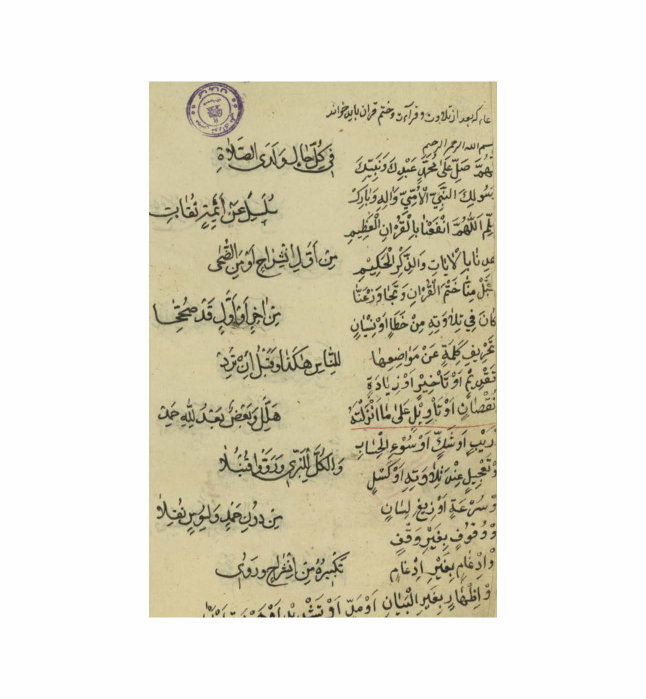 بعد از تلاوت و قرآءت و ختم قران باید خواند
بسم الله الرحمن الرحیم
صَلِّ عَلىٰ مُحَمَّدٍ عَبْدِكَ وَنَبِيِّكَ
النَّبِيِّ الْأُمِّيِّ وَاٰلِهِ وَبَارِكْ
اَللّٰهُمَّ انْفَعْنَا بِالْقُرْاٰنِ الْعَظِيمِ
بِالْاٰيَاتِ وَالذِّكْرِ الْحَكِيمِ
مِنَّا خَتْمَ الْقُرْاٰنِ وَتَجَاوَزْ عَنَّا
كَانَ فِي تِلَاوَتِهِ مِنْ خَطَاٍ اَوْ نِسْيَانٍ
تَحْرِيفِ كَلِمَةٍ عَنْ مَوَاضِعِهَا
تَقْدِيمٍ اَوْ تَأْخِيرٍ اَوْ زِيَادَةٍ
نُقْصَانٍ اَوْ تَأْوِيلٍ عَلىٰ مَا اَنْزَلْتَهُ
رَيْبٍ اَوْ شَكٍّ اَوْ سُوْءِ الْحِسَابِ
تَعْجِيلٍ عِنْدَ تِلَاوَتِهِ اَوْ كَسَلٍ
وْ سُرْعَةٍ اَوْ زَيْغِ لِسَانٍ
وْ وُقُوفٍ بِغَيْرِ وَقْفٍ
وْ اِدْغَامٍ بِغَيْرِ اِدْغَامٍ
وْ اِظْهَارٍ بِغَيْرِ الْبَيَانِ اَوْ مَدٍّ اَوْ تَشْدِيدٍ
فِي كُلِّ حَالٍ وَلَدَى الصَّلَاةِ
سُلْسِلَ عَنْ أَئِمَّةٍ ثِقَاتِ
مِنْ أَوَّلِ انْشِرَاحٍ أَوْ مِنَ الضُّحَى
مِنْ آخِرٍ أَوْ أَوَّلٍ قَدْ صُحِّحَا
لِلنَّاسِ هٰكَذَا وَقَبْلُ إِنْ تُرِدْ
هَلِّلْ وَبَعْضٌ بَعْدُ لِلّٰهِ حَمِدْ
وَالْكُلُّ لِلْبَزِّي وَرَوَوْا قُنْبُلَا
مِنْ دُونِ حَمْدٍ وَلِسُوسٍ نُقِلَا
تَكْبِيرُهُ مِنِ انْشِرَاحٍ وَرُوِي